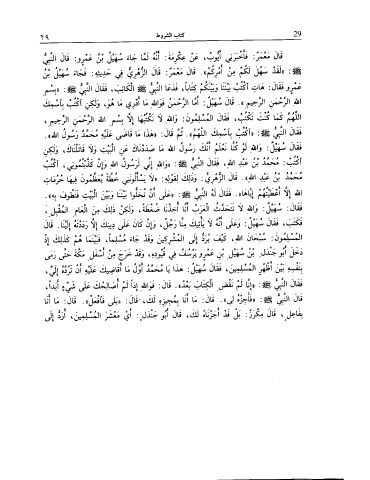 29 كتاب الشروط ٢٩
قَالَ مَعْمَرٌ: فَأَخْبَرَنِي أَيُّوبُ، عَنْ عِكْرِمَةَ: أَنَّهُ لَمَّا جَاءَ سُهَيْلُ بْنُ عَمْرٍو: قَالَ النَّبِيُّ
ﷺ: «لَقَدْ سَهُلَ لَكُمْ مِنْ أَمْرِكُمْ». قَالَ مَعْمَرٌ: قَالَ الزُّهْرِيُّ فِي حَدِيثِهِ: فَجَاءَ سُهَيْلُ بْنُ
عَمْرٍو فَقَالَ: هَاتِ اكْتُبْ بَيْنَنَا وَبَيْنَكُمْ كِتَاباً، فَدَعَا النَّبِيُّ ﷺ الْكَاتِبَ، فَقَالَ النَّبِيُّ ﷺ: «بِسْمِ
اللهِ الرَّحْمٰنِ الرَّحِيمِ». قَالَ سُهَيْلٌ: أَمَّا الرَّحْمٰنُ فَوَاللهِ مَا أَدْرِي مَا هُوَ، وَلَكِنِ اكْتُبْ بِاسْمِكَ
اللَّهُمَّ كَمَا كُنْتَ تَكْتُبُ، فَقَالَ الْمُسْلِمُونَ: وَاللهِ لَا نَكْتُبُهَا إِلَّا بِسْمِ اللهِ الرَّحْمٰنِ الرَّحِيمِ،
فَقَالَ النَّبِيُّ ﷺ: «اكْتُبْ بِاسْمِكَ اللَّهُمَّ». ثُمَّ قَالَ: «هَذَا مَا قَاضَى عَلَيْهِ مُحَمَّدٌ رَسُولُ اللهِ».
فَقَالَ سُهَيْلٌ: وَاللهِ لَوْ كُنَّا نَعْلَمُ أَنَّكَ رَسُولُ اللهِ مَا صَدَدْنَاكَ عَنِ الْبَيْتِ وَلَا قَاتَلْنَاكَ، وَلَكِنِ
اكْتُبْ: مُحَمَّدُ بْنُ عَبْدِ اللهِ، فَقَالَ النَّبِيُّ ﷺ: «وَاللهِ إِنِّي لَرَسُولُ اللهِ وَإِنْ كَذَّبْتُمُونِي، اكْتُبْ
مُحَمَّدُ بْنُ عَبْدِ اللهِ». قَالَ الزُّهْرِيُّ: وَذَلِكَ لِقَوْلِهِ: «لَا يَسْأَلُونَنِي خُطَّةً يُعَظِّمُونَ فِيهَا حُرُمَاتِ
اللهِ إِلَّا أَعْطَيْتُهُمْ إِيَّاهَا». فَقَالَ لَهُ النَّبِيُّ ﷺ: «عَلَى أَنْ تُخَلُّوا بَيْنَنَا وَبَيْنَ الْبَيْتِ فَنَطُوفَ بِهِ».
فَقَالَ: سُهَيْلٌ: وَاللهِ لَا تَتَحَدَّثُ الْعَرَبُ أَنَّا أُخِذْنَا ضُغْطَةً، وَلَكِنْ ذَلِكَ مِنَ الْعَامِ الْمُقْبِلِ،
فَكَتَبَ، فَقَالَ سُهَيْلٌ: وَعَلَى أَنَّهُ لَا يَأْتِيكَ مِنَّا رَجُلٌ، وَإِنْ كَانَ عَلَى دِينِكَ إِلَّا رَدَدْتَهُ إِلَيْنَا. قَالَ
الْمُسْلِمُونَ: سُبْحَانَ اللهِ، كَيْفَ يُرَدُّ إِلَى الْمُشْرِكِينَ وَقَدْ جَاءَ مُسْلِماً، فَبَيْنَمَا هُمْ كَذَلِكَ إِذْ
دَخَلَ أَبُو جَنْدَلِ بْنُ سُهَيْلِ بْنِ عَمْرٍو يَرْسُفُ فِي قُيُودِهِ، وَقَدْ خَرَجَ مِنْ أَسْفَلِ مَكَّةَ حَتَّى رَمَى
بِنَفْسِهِ بَيْنَ أَظْهُرِ الْمُسْلِمِينَ، فَقَالَ سُهَيْلٌ: هَذَا يَا مُحَمَّدُ أَوَّلُ مَا أُقَاضِيكَ عَلَيْهِ أَنْ تَرُدَّهُ إِلَيَّ،
فَقَالَ النَّبِيُّ ﷺ: «إِنَّا لَمْ نَقْضِ الْكِتَابَ بَعْدُ». قَالَ: فَوَاللهِ إِذاً لَمْ أُصَالِحْكَ عَلَى شَيْءٍ أَبَداً،
قَالَ النَّبِيُّ ﷺ: «فَأَجِزْهُ لِي». قَالَ: مَا أَنَا بِمُجِيزِهِ لَكَ، قَالَ: «بَلَى فَافْعَلْ». قَالَ: مَا أَنَا
بِفَاعِلٍ، قَالَ مِكْرَزٌ: بَلْ قَدْ أَجَزْنَاهُ لَكَ، قَالَ أَبُو جَنْدَلٍ: أَيْ مَعْشَرَ الْمُسْلِمِينَ، أُرَدُّ إِلَى